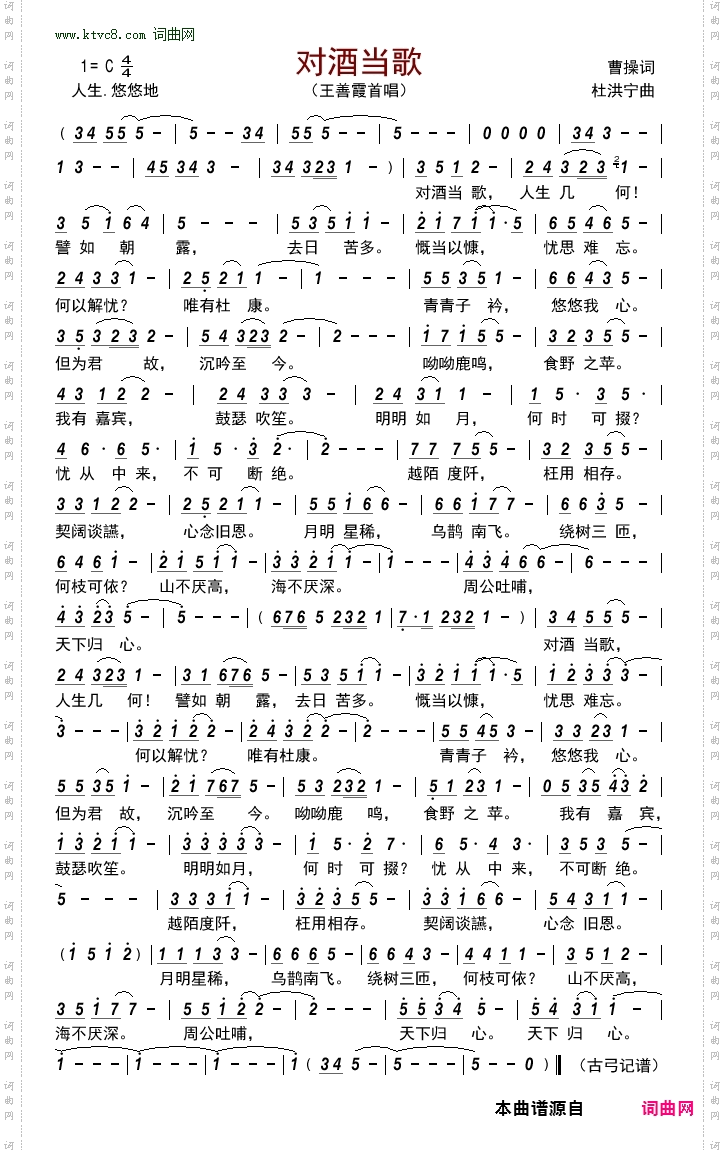 www.ktvc8.com 词曲网
对酒当歌
1= C 4/4
曹操词
人生.悠悠地
（王善霞首唱）
杜洪宁曲
( 34 55 5 - | 5 - - 34 | 55 5 - - | 5 - - - | 0 0 0 0 | 34 3 - - |
1 3 - - | 45 34 3 - | 34 323 1 - ) | 3 51 2 - | 24 323 1 - |
对酒当 歌， 人生 几 何！
3 5 1 64 | 5 - - - | 53 51 1 - | 21 71 1·5 | 65 46 5 - |
譬 如 朝 露， 去日 苦多。 慨当以慷， 忧思 难 忘。
24 33 1 - | 25 21 1 - | 1 - - - | 55 35 1 - | 66 43 5 - |
何以解忧？ 唯有杜 康。 青青子 衿， 悠悠我 心。
35 323 2 - | 54 323 2 - | 2 - - - | 17 15 5 - | 32 35 5 - |
但为君 故， 沉吟至 今。 呦呦鹿鸣， 食野 之苹。
43 12 2 - | 24 33 3 - | 24 31 1 - | 1 5· 3 5· |
我有 嘉宾， 鼓瑟 吹笙。 明明 如 月， 何 时 可 掇？
4 6· 6 5· | 1 5· 3 2· | 2 - - - | 77 75 5 - | 32 35 5 - |
忧 从 中 来， 不 可 断 绝。 越陌 度阡， 枉用 相存。
33 12 2 - | 25 21 1 - | 55 16 6 - | 66 17 7 - | 66 35 - |
契阔谈讌， 心念旧恩。 月明 星稀， 乌鹊 南飞。 绕树三 匝，
64 61 - | 21 51 1 - | 33 21 1 - | 1 - - - | 43 46 6 - | 6 - - - |
何枝可依？ 山不厌高， 海不厌深。 周公吐哺，
43 23 5 - | 5 - - - | ( 676 5 232 1 | 7·1 232 1 - ) | 34 55 5 - |
天下归 心。 对酒 当歌，
24 323 1 - | 31 676 5 - | 53 51 1 - | 32 11 1·5 | 12 33 - |
人生几 何！ 譬如 朝 露， 去日 苦多。 慨当以慷， 忧思 难忘。
3 - - - | 32 12 2 - | 24 32 2 - | 2 - - - | 55 45 3 - | 33 23 1 - |
何以解忧？ 唯有杜康。 青青子 衿， 悠悠我 心。
55 35 1 - | 21 767 5 - | 53 232 2 - | 51 23 1 - | 05 35 43 2 |
但为君 故， 沉吟至 今。 呦呦鹿 鸣， 食野 之 苹。 我有 嘉 宾，
13 21 1 - | 33 33 3 - | 1 5· 2 7· | 6 5· 4 3· | 35 3 5 - |
鼓瑟吹笙。 明明如月， 何 时 可 掇？ 忧 从 中 来， 不可断 绝。
5 - - - | 33 31 1 - | 32 35 5 - | 33 16 6 - | 54 31 1 - |
越陌度阡， 枉用相存。 契阔谈讌， 心念 旧恩。
( 1 5 1 2 ) | 11 13 3 - | 66 65 - | 66 43 - | 44 11 - | 35 12 - |
月明星稀， 乌鹊南飞。 绕树三匝， 何枝可依？ 山不厌高，
35 17 7 - | 55 12 2 - | 2 - - - | 55 34 5 - | 54 31 1 - |
海不厌深。 周公吐哺， 天下归 心。 天下 归 心。
1 - - - | 1 - - - | 1 - - - | 1 ( 34 5 - | 5 - - - | 5 - - 0 ) ‖ （古弓记谱）
本曲谱源自 词曲网